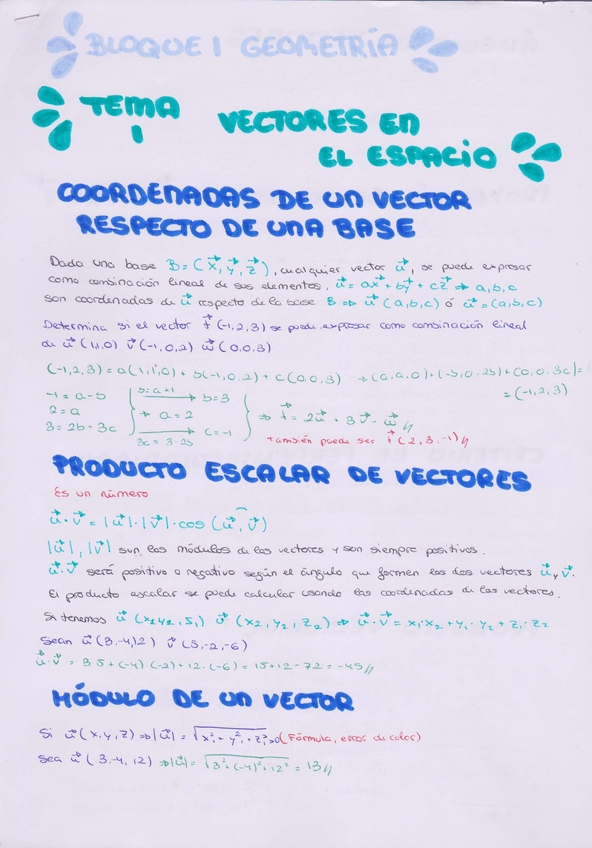 BLOQUE 1 GEOMETRÍA
TEMA 1 VECTORES EN
EL ESPACIO
COORDENADAS DE UN VECTOR
RESPECTO DE UNA BASE
Dada una base B=(x⃗, y⃗, z⃗), cualquier vector u⃗, se puede expresar
como combinación lineal de sus elementos, u⃗ = ax⃗ + by⃗ + cz⃗ ⇒ a,b,c
son coordenadas de u⃗ respecto de la base B ⇒ u⃗ (a,b,c) ó u⃗ = (a,b,c)
Determina si el vector t⃗ (-1,2,3) se puede expresar como combinación lineal
de u⃗ (1,1,0) v⃗ (-1,0,2) w⃗ (0,0,3)
(-1,2,3) = a(1,1,0) + b(-1,0,2) + c(0,0,3) → (a,a,0)+(-b,0,2b)+(0,0,3c)=
= (-1,2,3)
-1 = a-b b=a+1 → b=3
2=a → a=2 ⇒ t⃗ = 2u⃗ + 3v⃗ - w⃗ //
3=2b+3c 3c=3-2b → c=-1
También puede ser t⃗ (2,3,-1) //
PRODUCTO ESCALAR DE VECTORES
Es un número
u⃗ · v⃗ = |u⃗| · |v⃗| · cos (u⃗, v⃗)
|u⃗|, |v⃗| son los módulos de los vectores y son siempre positivos.
u⃗ · v⃗ será positivo o negativo según el ángulo que formen los dos vectores u⃗ y v⃗.
El producto escalar se puede calcular usando las coordenadas de los vectores.
Si tenemos u⃗ (x₁, y₁, z₁) v⃗ (x₂, y₂, z₂) ⇒ u⃗ · v⃗ = x₁·x₂ + y₁·y₂ + z₁·z₂
Sean u⃗ (3,-4,12) v⃗ (5,-2,-6)
u⃗ · v⃗ = 3·5 + (-4)·(-2) + 12·(-6) = 15+12-72 = -49 //
MÓDULO DE UN VECTOR
Si u⃗ (x,y,z) ⇒ |u⃗| = √x²₁ + y²₁ + z²₁ (Fórmula, error de color)
Sea u⃗ (3,-4,12) ⇒ |u⃗| = √3²+(-4)²+12² = 13 //